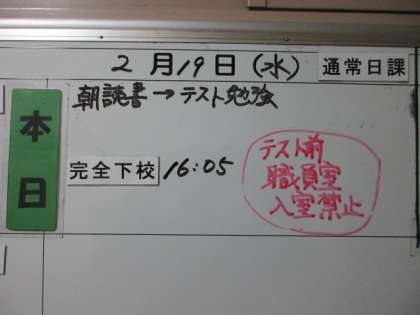 2月19日(水) 通常日課
朝読書→テスト勉強
本日
完全下校 16:05
テスト前
職員室
入室禁止